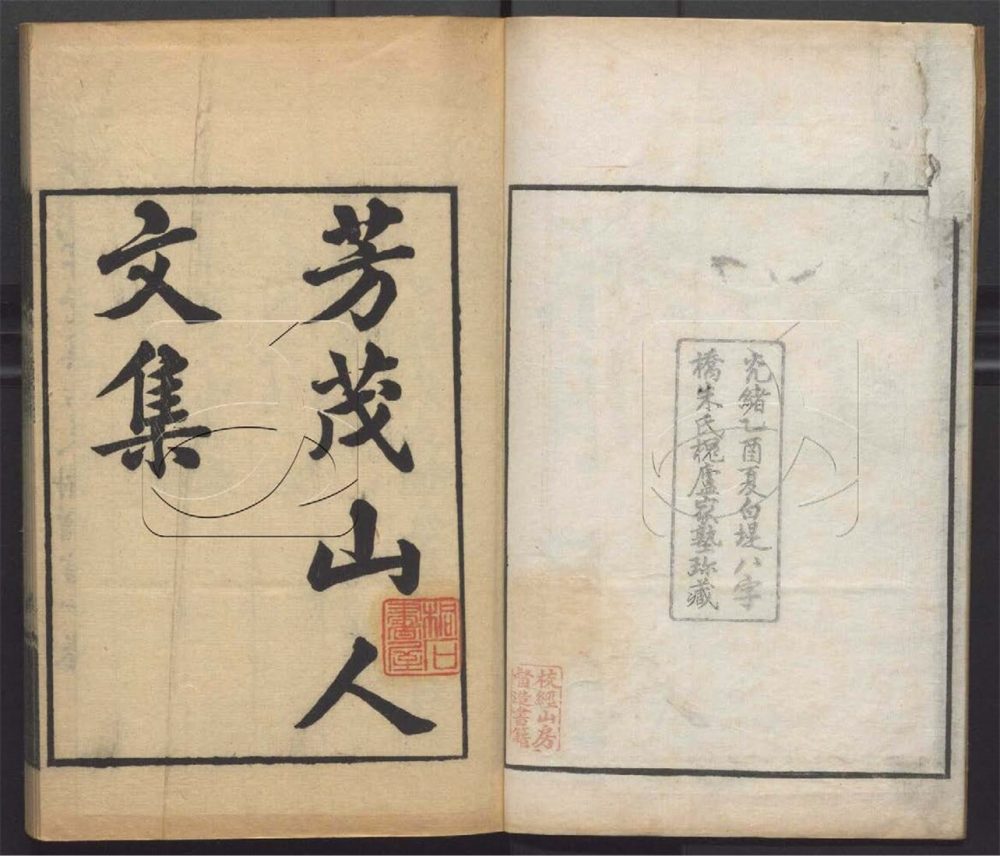 光緒乙酉夏白堤八字
橋朱氏槐廬家塾珍藏
校經山房
督造書籍
芳茂山人
文集